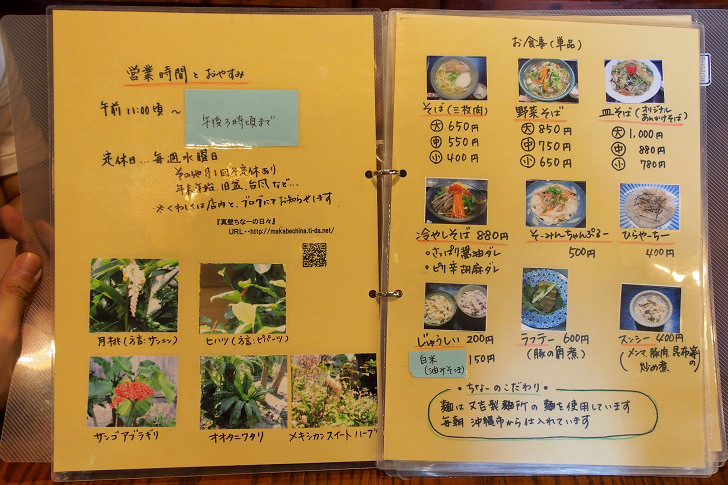 営業時間とおやすみ
午前11:00頃～
午後3時頃まで
定休日…毎週水曜日
その他月1回不定休あり
年末年始 旧盆、台風など…
※くわしくは店内と、ブログにてお知らせします
『真壁ちなーの日々』
URL‥http://makabechina.ti-da.net/
月桃(方言:サンニン)
ヒハツ(方言:ピパーツ)
サンゴアブラギリ
オオタニワタリ
メキシカンスイートハーブ
お食事(単品)
そば(三枚肉)
大 650円
中 550円
小 400円
野菜そば
大 850円
中 750円
小 650円
皿そば(オリジナルあんかけそば)
大 1,000円
中 880円
小 780円
冷やしそば 880円
・さっぱり醤油ダレ
・ピリ辛胡麻ダレ
そーみんちゃんぷるー
500円
ひらやーちー
400円
じゅうしぃ 200円
白米
(油みそつき)
150円
ラフテー 600円
(豚の角煮)
スンシー 400円
(メンマ、豚肉、昆布等の
炒め煮)
・ちなーのこだわり・
麺は又吉製麺所の麺を使用しています
毎朝 沖縄市から仕入れています